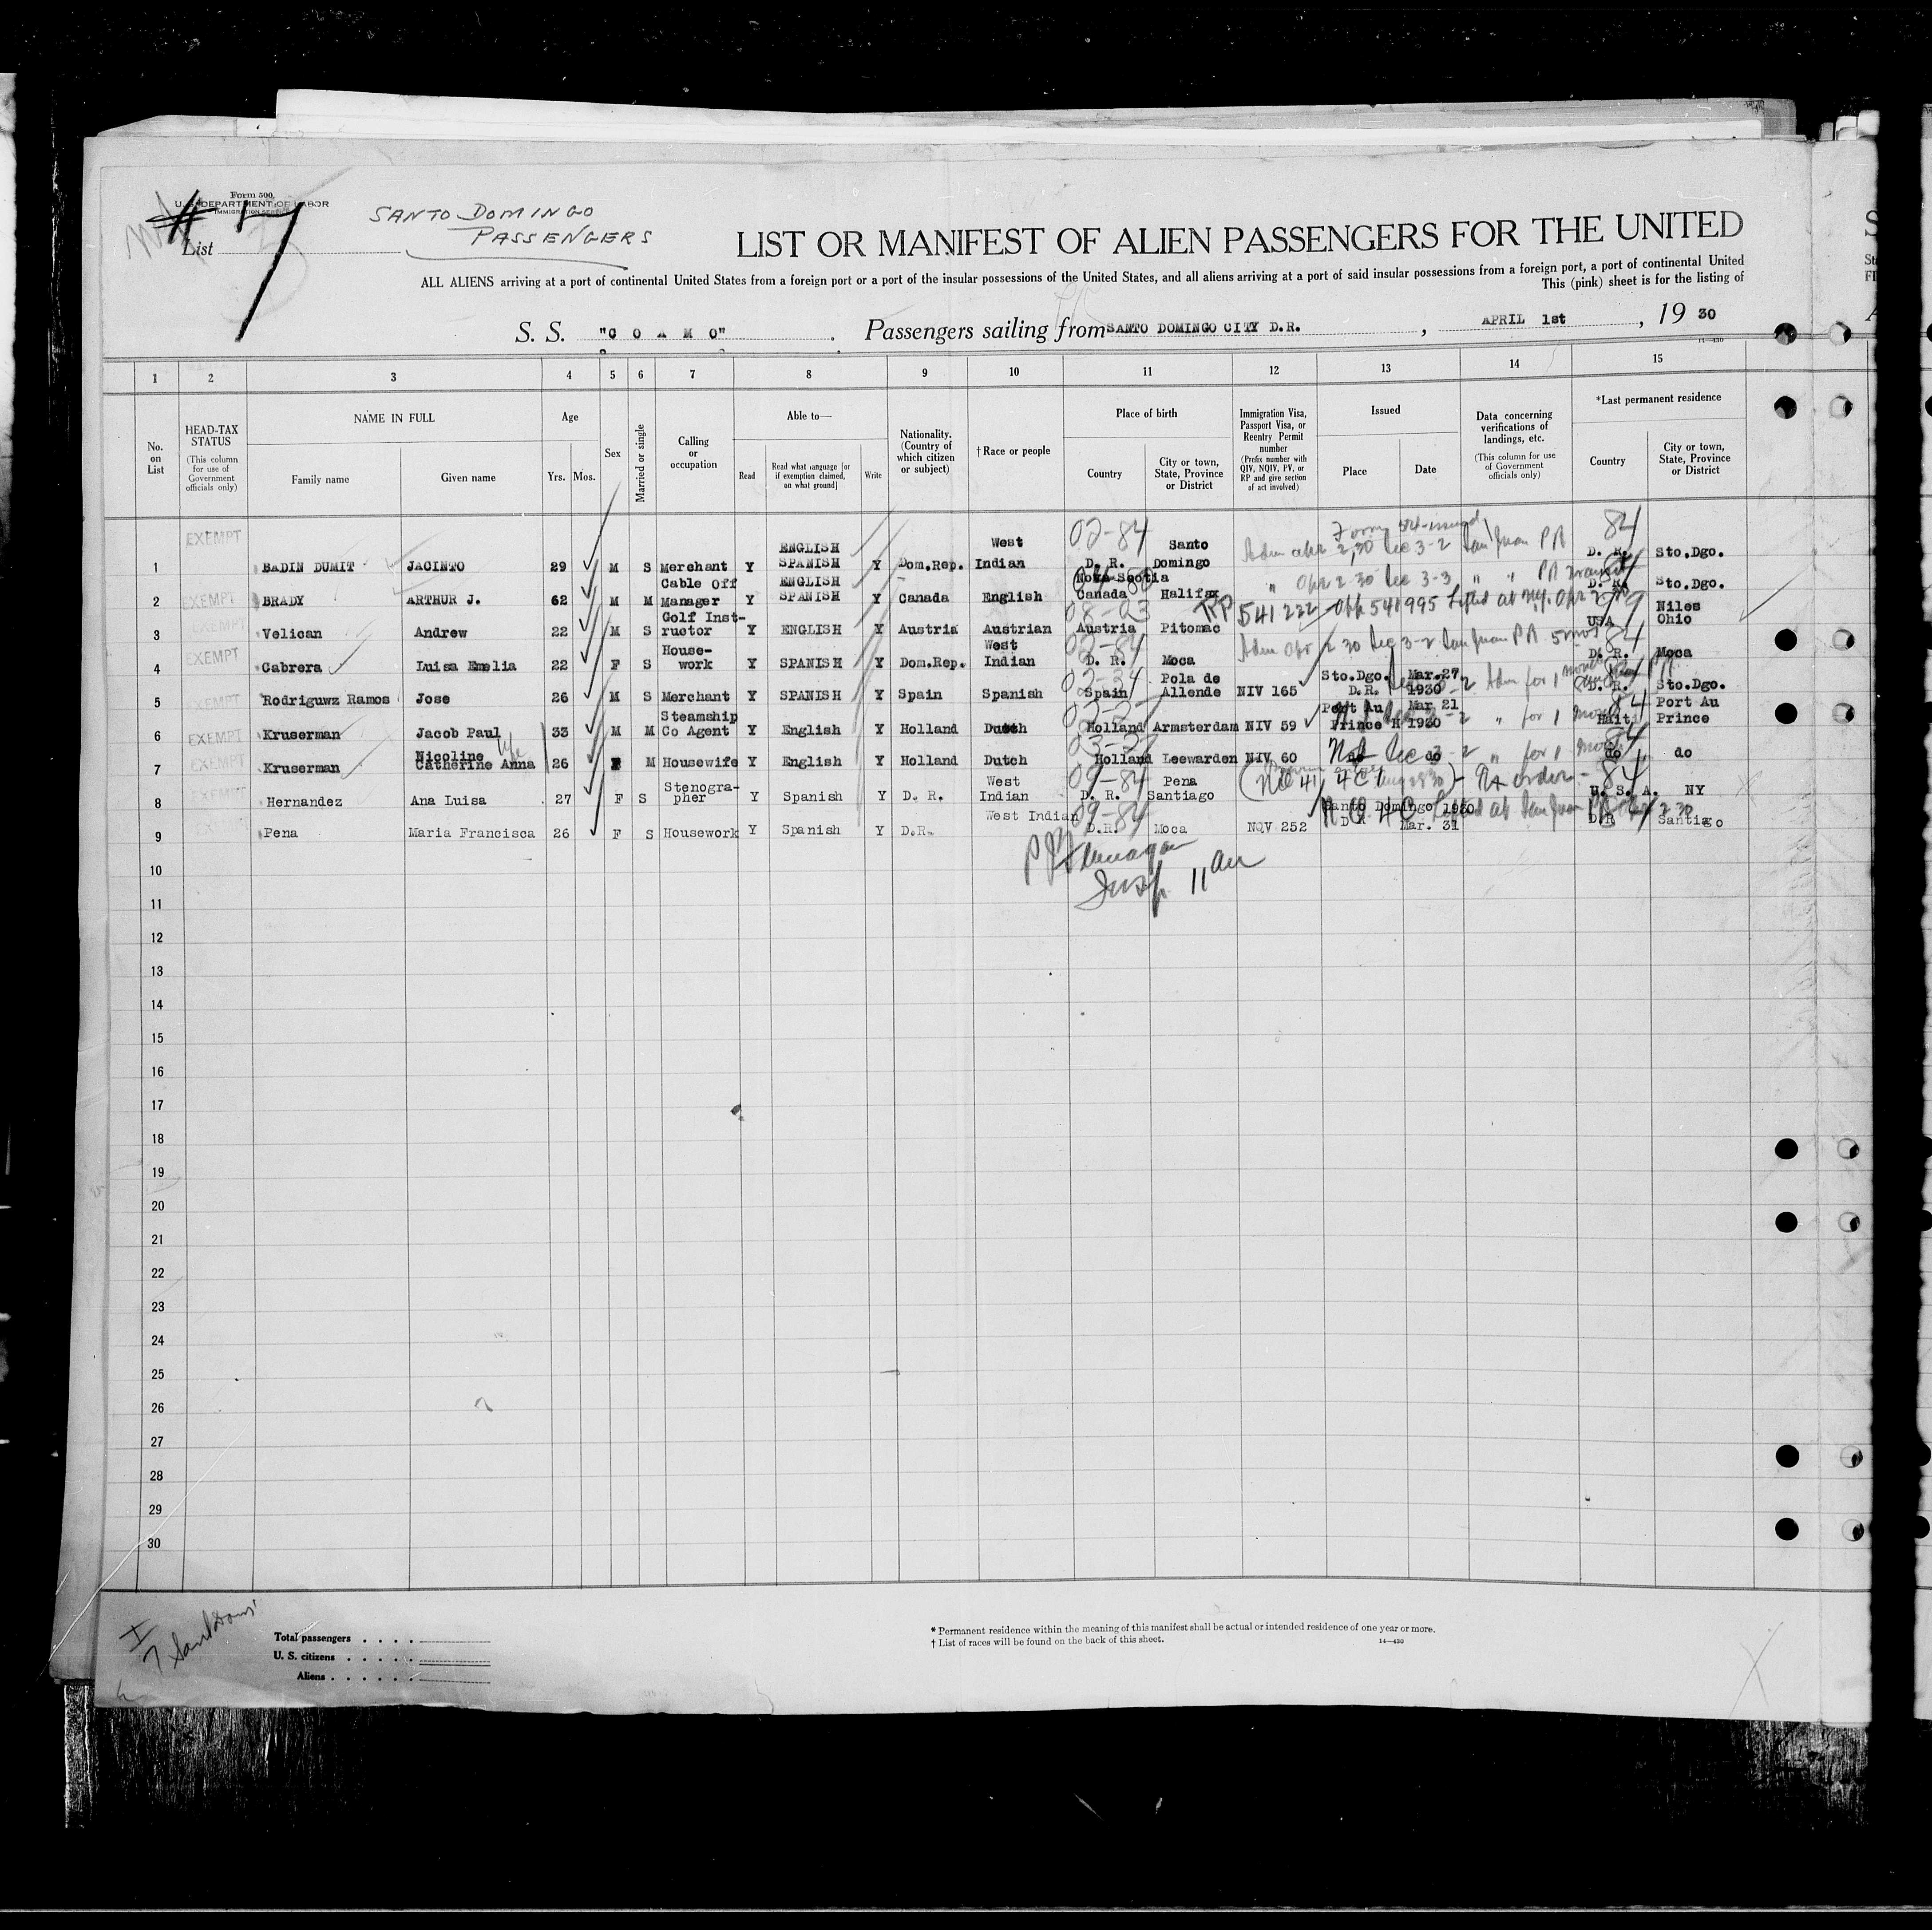 Form 500
U. S. DEPARTMENT OF LABOR
IMMIGRATION SERVICE
# 7
List
SANTO DOMINGO
PASSENGERS
LIST OR MANIFEST OF ALIEN PASSENGERS FOR THE UNITED
ALL ALIENS arriving at a port of continental United States from a foreign port or a port of the insular possessions of the United States, and all aliens arriving at a port of said insular possessions from a foreign port, a port of continental United
This (pink) sheet is for the listing of
S. S. "C O A M O" . Passengers sailing from SANTO DOMINGO CITY D.R. , APRIL 1st , 19 30
14—430
1 2 3 4 5 6 7 8 9 10 11 12 13 14 15
No. on List
HEAD-TAX STATUS (This column for use of Government officials only)
NAME IN FULL Family name Given name
Age Yrs. Mos.
Sex
Married or single
Calling or occupation
Able to— Read Read what language [or if exemption claimed, on what ground] Write
Nationality. (Country of which citizen or subject)
† Race or people
Place of birth Country City or town, State, Province or District
Immigration Visa, Passport Visa, or Reentry Permit number (Prefix number with QIV, NQIV, PV, or RP and give section of act involved)
Issued Place Date
Data concerning verifications of landings, etc. (This column for use of Government officials only)
*Last permanent residence Country City or town, State, Province or District
1 EXEMPT BADIN DUMIT JACINTO 29 M S Merchant Y ENGLISH SPANISH Y Dom.Rep. West Indian 02-84 D. R. Santo Domingo Adm Apr 2,30 Sec 3-2 San Juan PR 84 D. R. Sto.Dgo.
2 EXEMPT BRADY ARTHUR J. 62 M M Cable Off Manager Y ENGLISH SPANISH Y Canada English Nova Scotia Canada Halifax " Apr 2-30 Sec 3-3 " " PR transit 84 D. R. Sto.Dgo.
3 EXEMPT Velican Andrew 22 M S Golf Inst-ructor Y ENGLISH Y Austria Austrian 08-03 Austria Pitomac RP 541222 541995 Lifted at 99 USA Niles Ohio
4 EXEMPT Cabrera Luisa Emelia 22 F S House-work Y SPANISH Y Dom.Rep. West Indian 02-84 D. R. Moca Adm Apr 2 30 Sec 3-2 San Juan PR 5 mos 84 D. R. Moca
5 EXEMPT Rodriguwz Ramos Jose 26 M S Merchant Y SPANISH Y Spain Spanish 02-34 Spain Pola de Allende NIV 165 Sto.Dgo. D.R. Mar.27 1930 Adm for 1 month D. R. Sto.Dgo.
6 EXEMPT Kruserman Jacob Paul 33 M M Steamship Co Agent Y English Y Holland Dutch Holland Armsterdam NIV 59 Port Au Prince H Mar 21 1930 " for 1 month 84 Haiti Port Au Prince
7 EXEMPT Kruserman Nicoline Catherine Anna 26 F M Housewife Y English Y Holland Dutch Holland Leewarden NIV 60 do Sec 3-2 " for 1 month 84 do do
8 EXEMPT Hernandez Ana Luisa 27 F S Stenogra-pher Y Spanish Y D. R. West Indian 09-84 D. R. Pena Santiago 84 U. S. A. NY
9 Pena Maria Francisca 26 F S Housework Y Spanish Y D.R. West Indian 09-84 D.R. Moca NQV 252 Santo Domingo D R 1930 Mar. 31 at San Juan PR D.R. Santiago
Insp. 11 am
10
11
12
13
14
15
16
17
18
19
20
21
22
23
24
25
26
27
28
29
30
Total passengers . . . .
U. S. citizens . . . . .
Aliens . . . . . .
* Permanent residence within the meaning of this manifest shall be actual or intended residence of one year or more.
† List of races will be found on the back of this sheet.
14—430